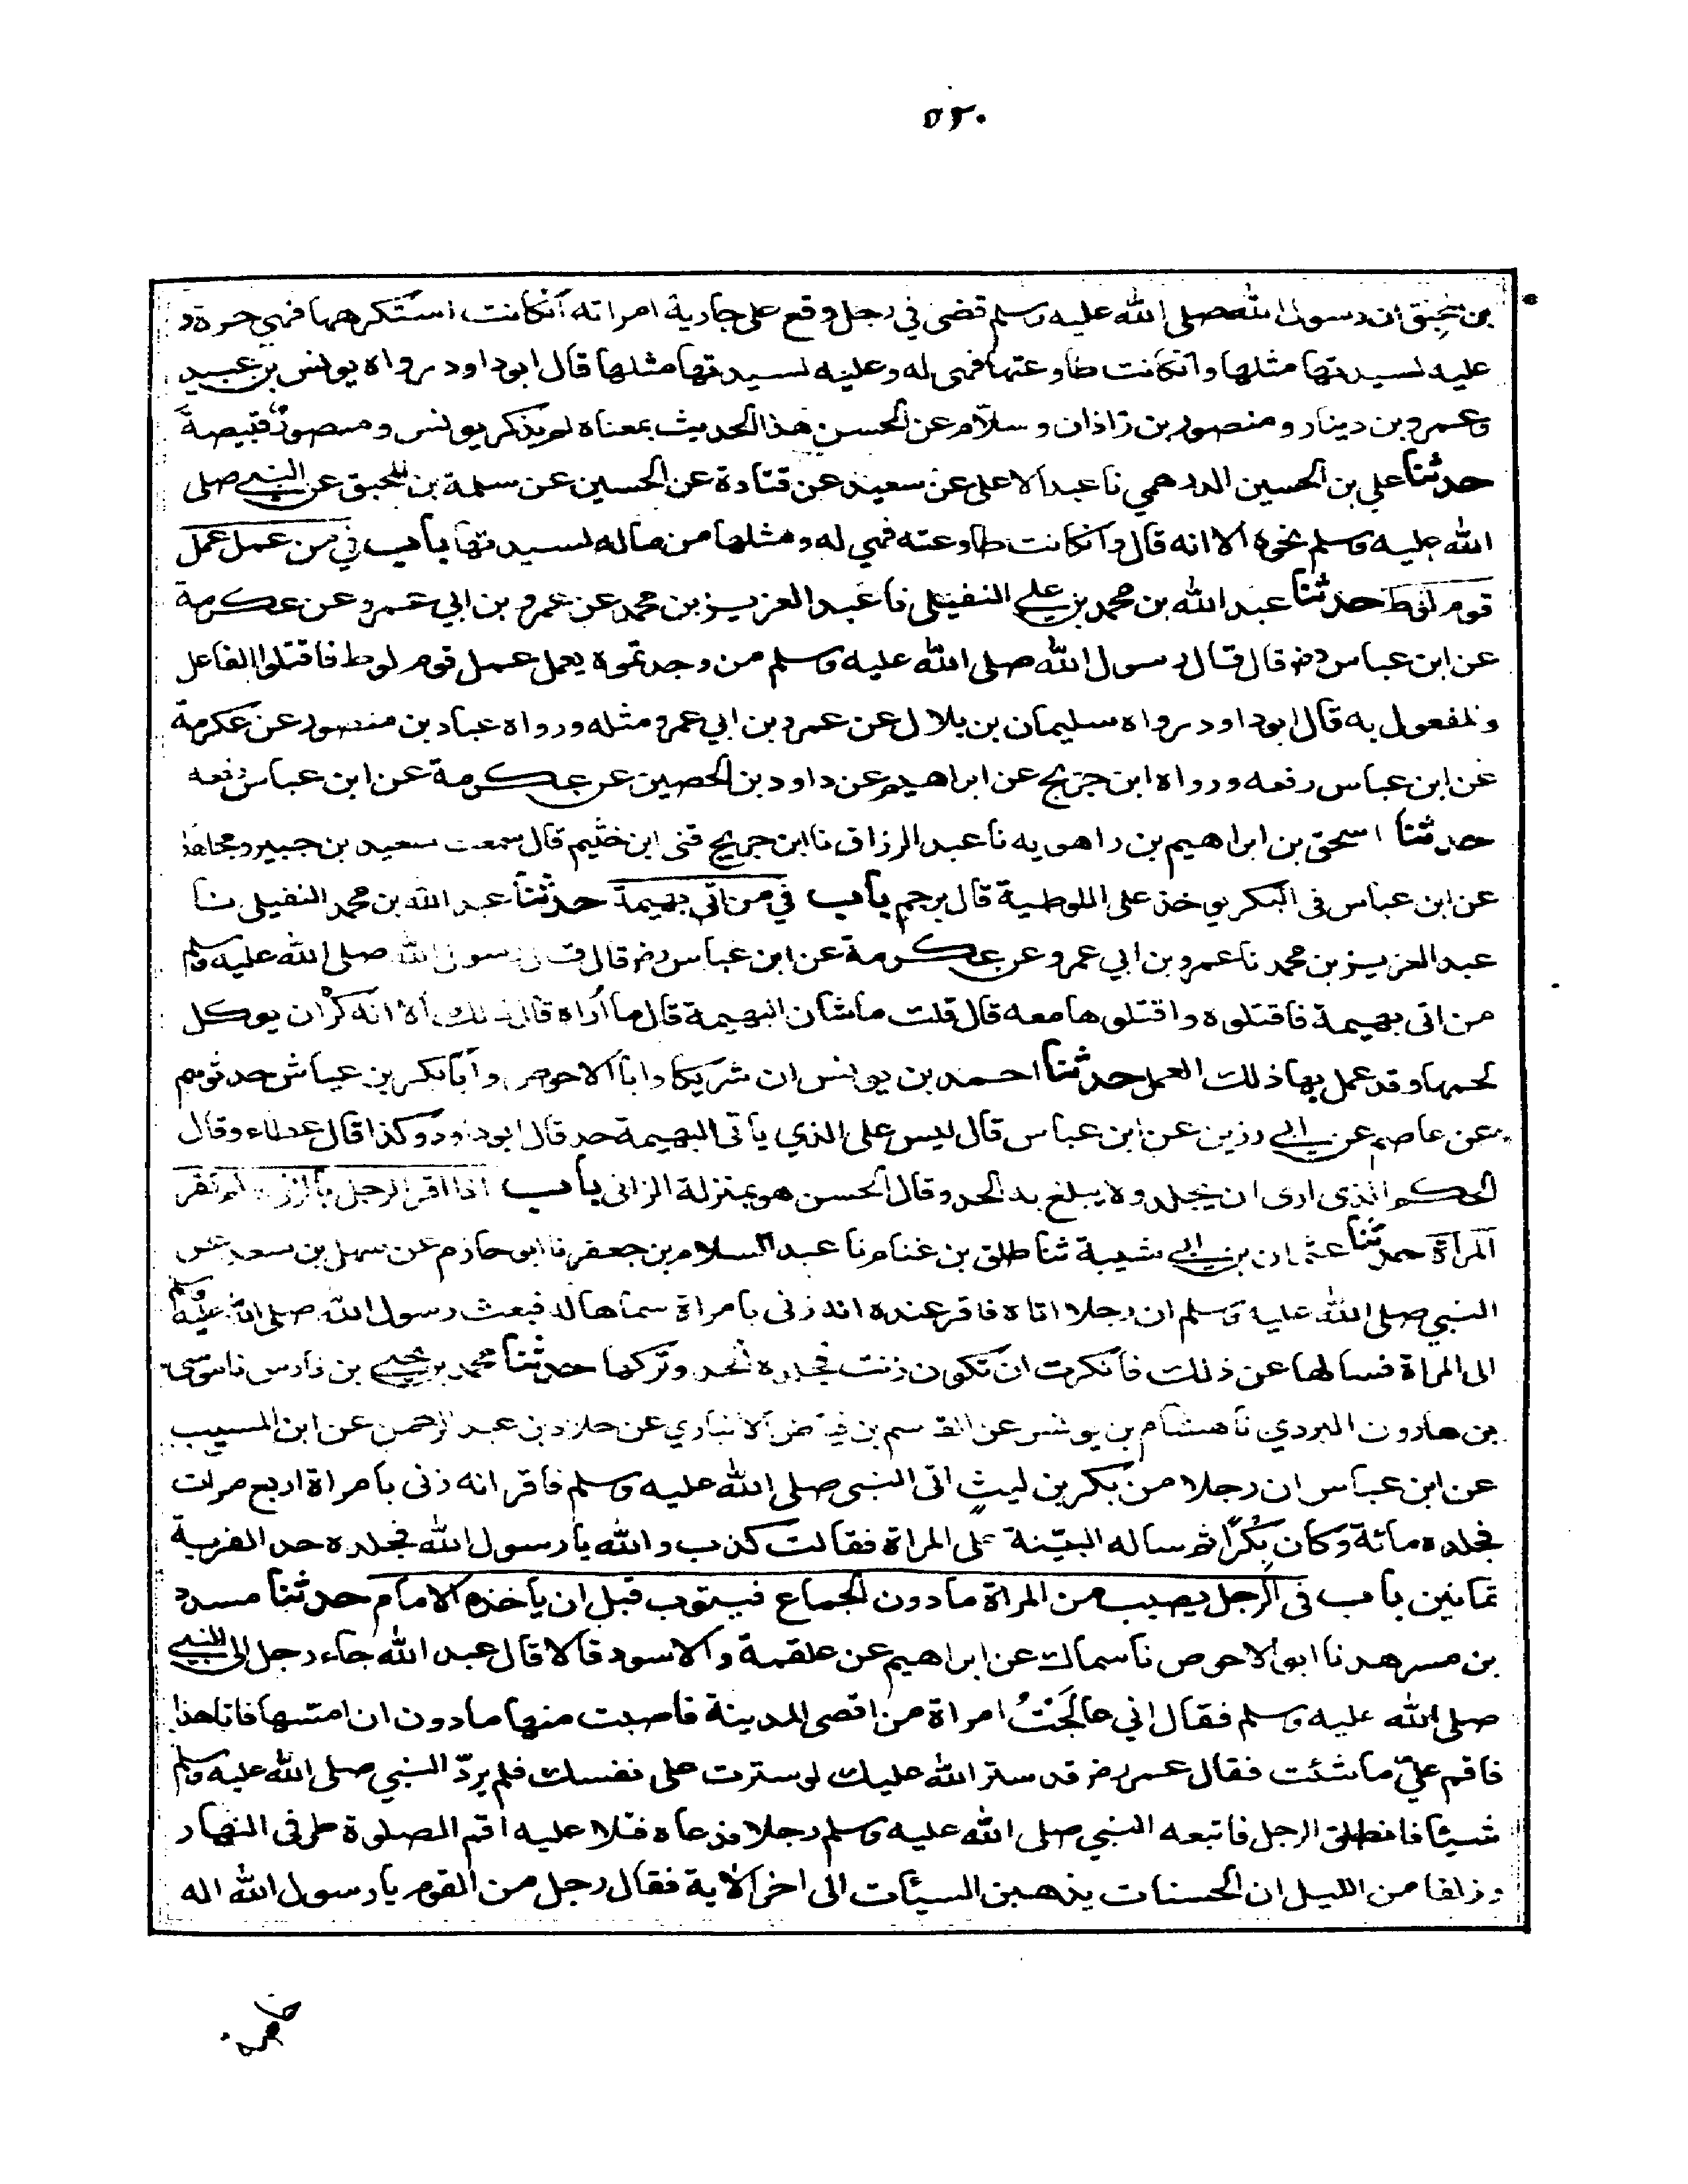 ٥٢٠
بن محبق ان رسول الله صلى الله عليه وسلم قضى في رجل وقع على جارية امراته ان كانت استكرهها فهي حرة و
عليه لسيدتها مثلها وان كانت طاوعته فهى له وعليه لسيدتها مثلها قال ابو داود رواه يونس بن عبيد
وعمرو بن دينار ومنصور بن زاذان وسلّام عن الحسن هذا الحديث بمعناه لم يذكر يونس ومنصور قبيصة
حدثنا علي بن الحسين الدرهمي نا عبد الاعلى عن سعيد عن قتادة عن الحسين عن سلمة بن المحبق عن النبي صلى
الله عليه وسلم نحوه الا انه قال وان كانت طاوعته فهي له ومثلها من ماله لسيدتها باب في من عمل عمل
قوم لوط حدثنا عبد الله بن محمد بن علي النفيلى نا عبد العزيز بن محمد عن عمرو بن ابي عمرو عن عكرمة
عن ابن عباس رض قال قال رسول الله صلى الله عليه وسلم من وجدتموه يعمل عمل قوم لوط فاقتلوا الفاعل
والمفعول به قال ابو داود رواه سليمان بن بلال عن عمرو بن ابي عمرو مثله ورواه عباد بن منصور عن عكرمة
عن ابن عباس رفعه ورواه ابن جريج عن ابراهيم عن داود بن الحصين عن عكرمة عن ابن عباس رفعه
حدثنا اسحق بن ابراهيم بن راهويه نا عبد الرزاق نا ابن جريج ثنى ابن خثيم قال سمعت سعيد بن جبير ومجاهدا
عن ابن عباس فى البكر يوخذ على اللوطية قال يرجم باب في من اتى بهيمة حدثنا عبد الله بن محمد النفيلى نا
عبد العزيز بن محمد نا عمرو بن ابي عمرو عن عكرمة عن ابن عباس رض قال قال رسول الله صلى الله عليه وسلم
من اتى بهيمة فاقتلوه واقتلوها معه قال قلت ما شان البهيمة قال ما أراه قال ذلك الا انه كره ان يوكل
لحمها وقد عمل بها ذلك العمل حدثنا احمد بن يونس ان شريكا وابا الاحوص وابا بكر بن عياش حدثوهم
عن عاصم عن ابي رزين عن ابن عباس قال ليس على الذي يأتى البهيمة حد قال ابو داود وكذا قال عطاء وقال
الحكم الذى ارى ان يجلد ولا يبلغ به الحد وقال الحسن هو بمنزلة الزانى باب اذا اقر الرجل بالزنا ولم تقر
المراة حدثنا عثمان بن ابي شيبة ثنا طلق بن غنام نا عبد السلام بن جعفر نا ابو حازم عن سهل بن سعد عن
النبي صلى الله عليه وسلم ان رجلا اتاه فاقر عنده انه زنى بامراة سماها له فبعث رسول الله صلى الله عليه وسلم
الى المراة فسالها عن ذلك فانكرت ان تكون زنت فجلده الحد وتركها حدثنا محمد بن يحيى بن فارس نا موسى
بن هارون البردي نا هشام بن يوسف عن القاسم بن فياض الانباري عن خلاد بن عبد الرحمن عن ابن المسيب
عن ابن عباس ان رجلا من بكر بن ليثٍ اتى النبى صلى الله عليه وسلم فاقر انه زنى بامراة اربع مرات
فجلده مائة وكان بِكْرًا ثم ساله البيّنة على المراة فقالت كذب والله يا رسول الله فجلده حد الفرية
ثمانين باب فى الرجل يصيب من المراة ما دون الجماع فيتوب قبل ان ياخذه الامام حدثنا مسدد
بن مسرهد نا ابو الاحوص نا سماك عن ابراهيم عن علقمة والاسود قالا قال عبد الله جاء رجل الى النبي
صلى الله عليه وسلم فقال اني عالَجْتُ امراة من اقصى المدينة فاصبت منها ما دون ان امسّها فانا هذا
فاقم عليّ ما شئت فقال عمر رض قد ستر الله عليك لو سترت على نفسك فلم يردّ النبي صلى الله عليه وسلم
شيئا فانطلق الرجل فاتبعه النبي صلى الله عليه وسلم رجلا فدعاه فتلا عليه اقم الصلوة طرفى النهار
وزلفا من الليل ان الحسنات يذهبن السيئات الى اخر الاية فقال رجل من القوم يا رسول الله اله